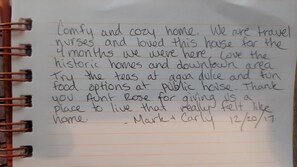 Comfy and cozy home. We are travel
nurses and loved this house for the
4 months we were here. Love the
historic homes and downtown area.
Try the teas at agua dulce and fun
food options at public house. Thank
you Aunt Rose for giving us a
place to live that really felt like
home - Mark + Carly 12/20/17